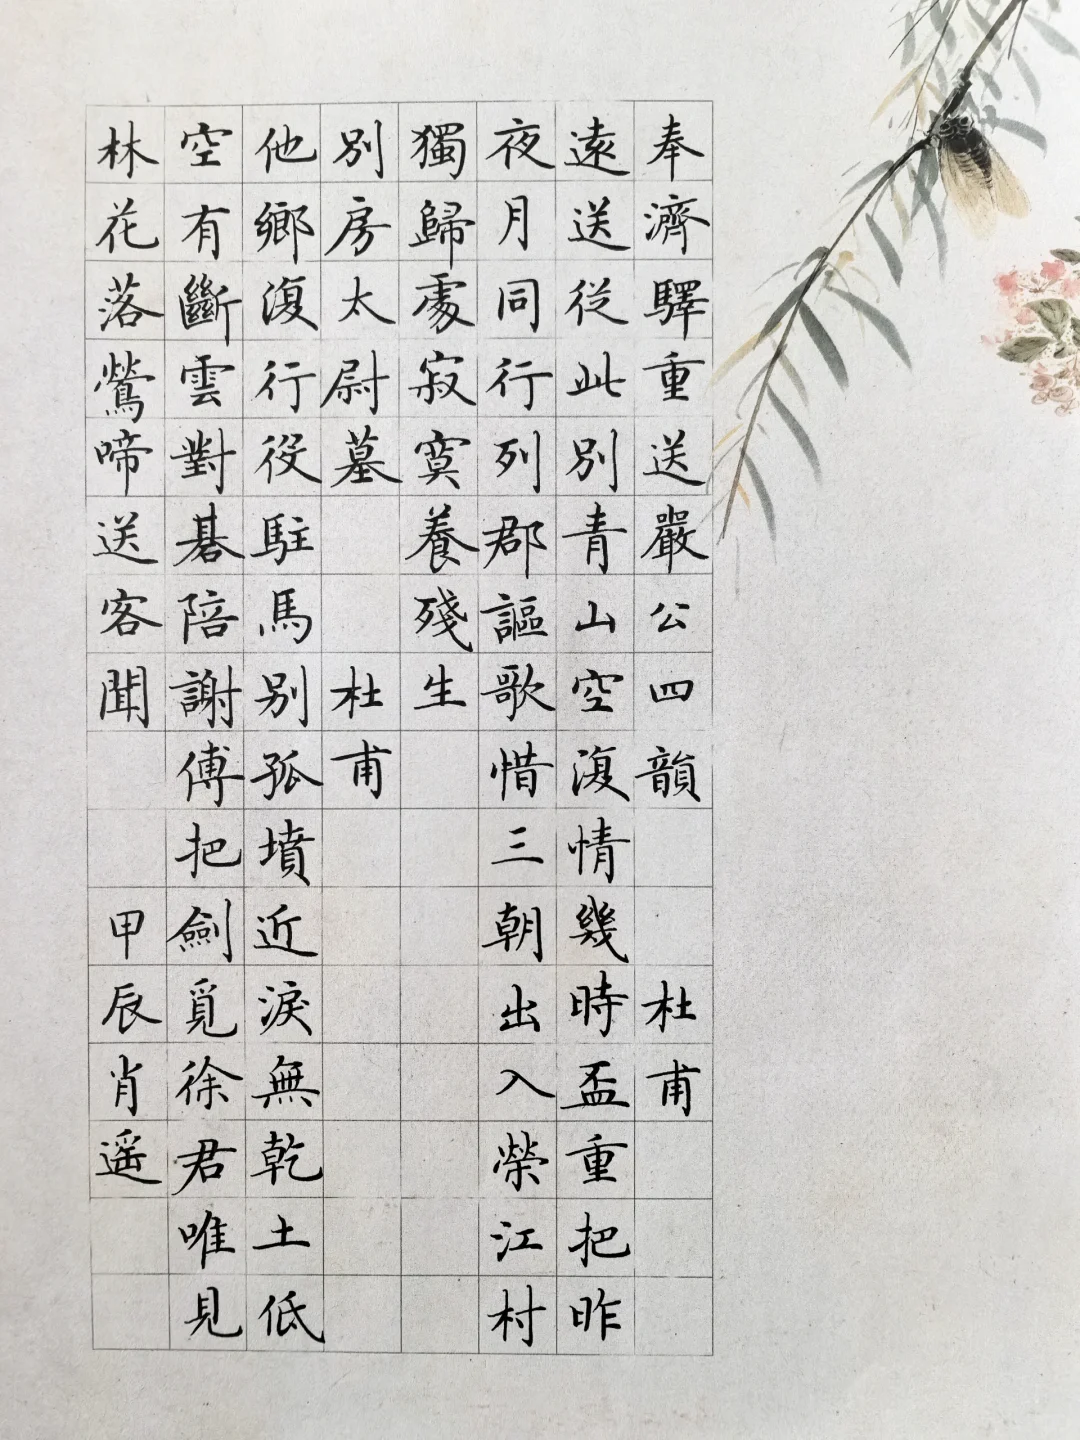 奉濟驛重送嚴公四韻 杜甫
遠送從此別青山空復情幾時盃重把昨
夜月同行列郡謳歌惜三朝出入榮江村
獨歸處寂寞養殘生
別房太尉墓 杜甫
他鄉復行役駐馬別孤墳近淚無乾土低
空有斷雲對碁陪謝傅把劍覓徐君唯見
林花落鶯啼送客聞 甲辰肖遥